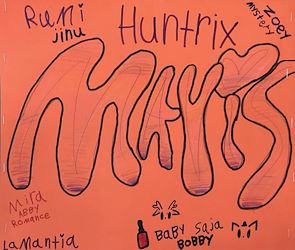 Rumi
jinu
Huntrix
Zoey
mystery
MAYIS
Mira
ABBY
ROMANCE
Lamantia
BABY Saja
BOBBY